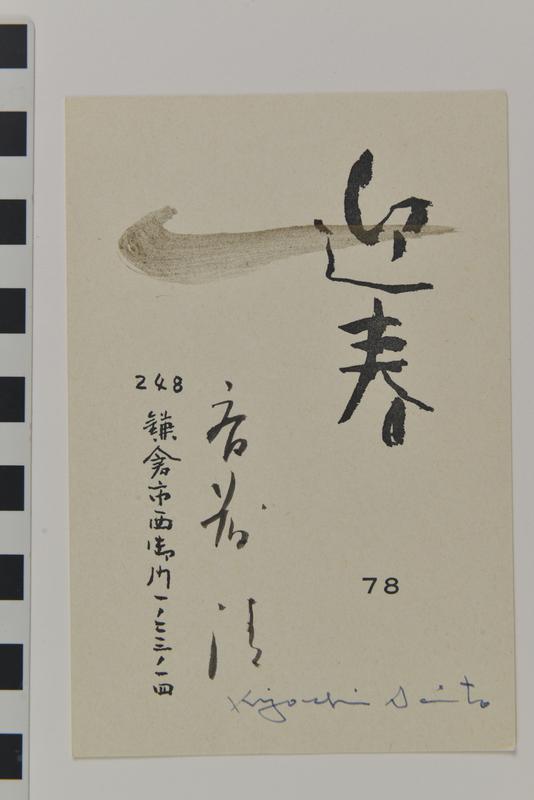 迎春
78
斎藤 清
248
鎌倉市西御門一ノ七三ノ一四
Kiyoshi Saito